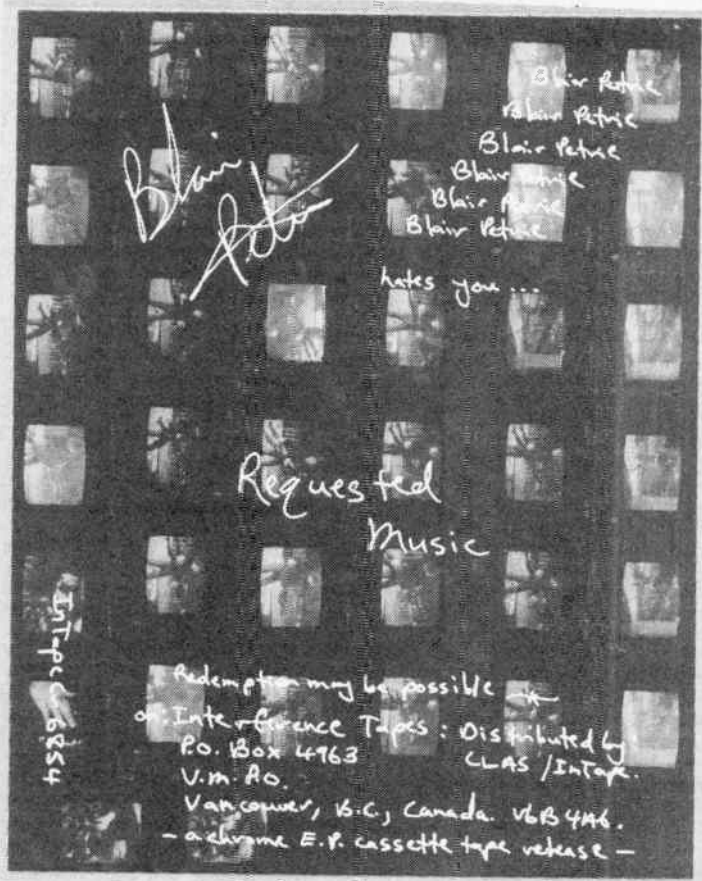 Blair
Petrie
Blair Petrie
Blair Petrie
Blair Petrie
Blair Petrie
Blair Petrie
Blair Petrie
hates you...
Requested
Music
InTape C-6854
Redemption may be possible
on: Interference Tapes: Distributed by:
P.O. Box 4963
CLAS / InTape.
V.M.P.O.
Vancouver, B.C., Canada. V6B 4A6.
- a chrome E.P. cassette tape release -